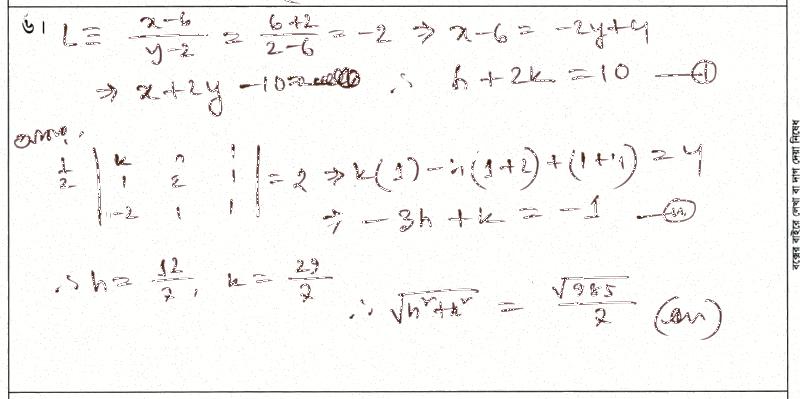 ৬। L ≡ x-6/y-2 = 6+2/2-6 = -2 ⇒ x-6 = -2y+4
⇒ x+2y-10= ∴ h+2k = 10 —(i)
1/2 | k h 1 | = 2 ⇒ k(1) - h(1+2) + (1+4) = 4
1 2 1
-2 1 1 ⇒ -3h + k = -1
∴ h = 12/7, k = 29/7 ∴ √h²+k² = √985/7 (Ans)
বক্সের বাইরে লেখা বা দাগ দেয়া নিষেধ